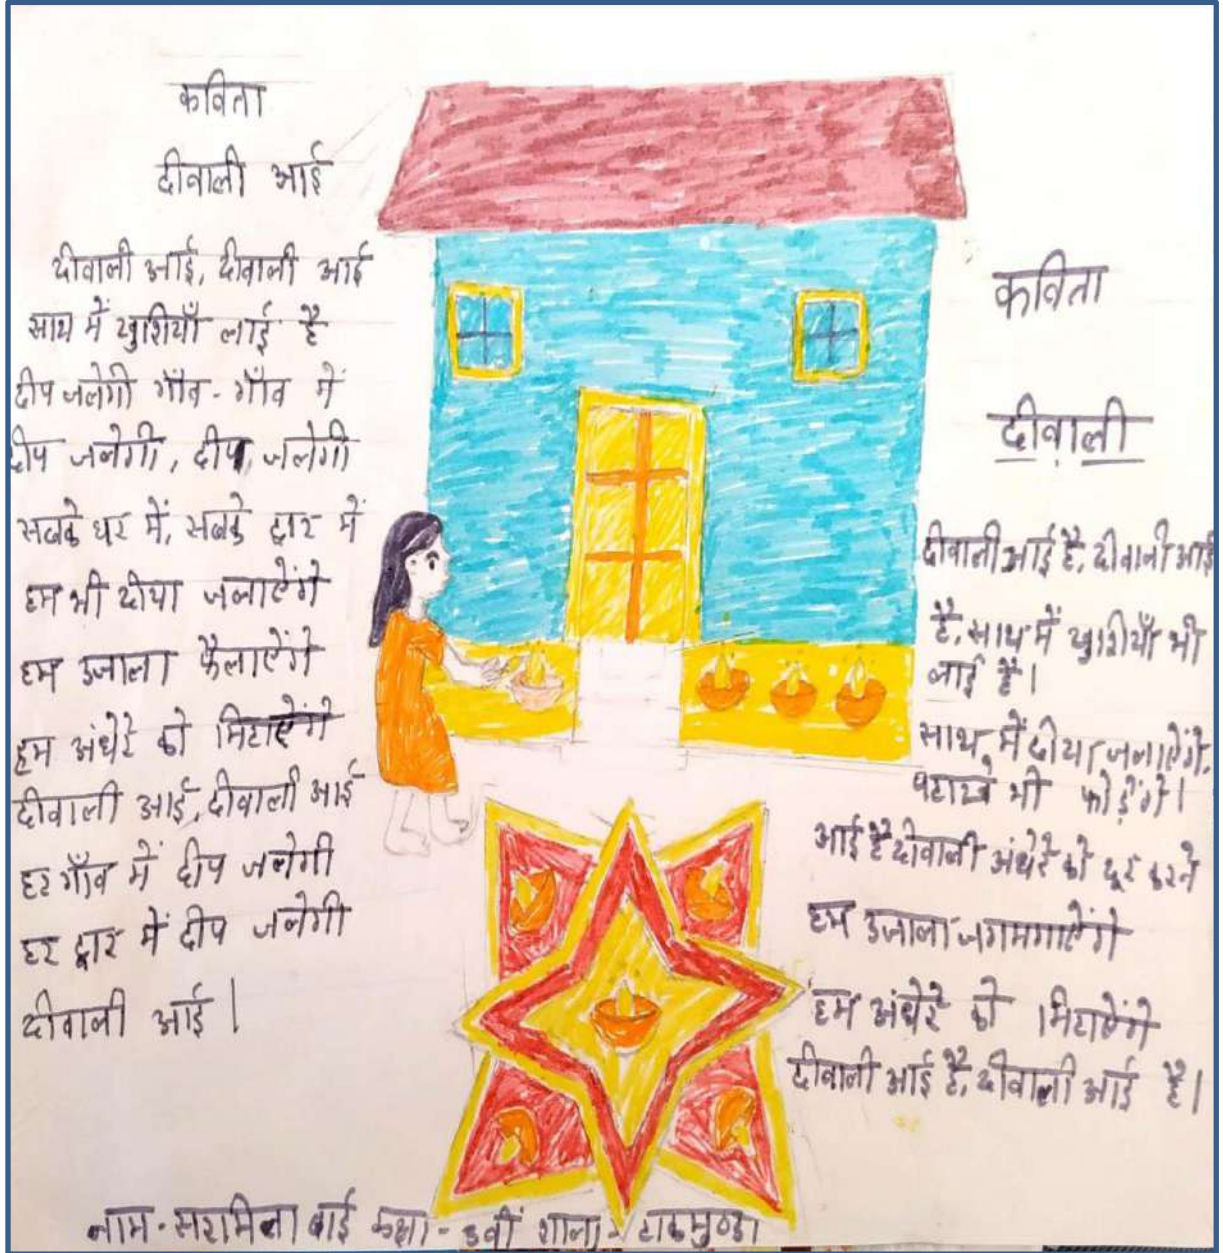 कविता
दीवाली आई
दीवाली आई, दीवाली आई
साथ में खुशियाँ लाई है
दीप जलेगी गाँव-गाँव में
दीप जलेगी, दीप जलेगी
सबके घर में, सबके द्वार में
हम भी दीया जलाऐंगे
हम उजाला फैलाऐंगे
हम अंधेरे को मिटाऐंगे
दीवाली आई, दीवाली आई
हर गाँव में दीप जलेगी
हर द्वार में दीप जलेगी
दीवाली आई।
कविता
दीवाली
दीवाली आई है, दीवाली आई
है, साथ में खुशियाँ भी
लाई है।
साथ में दीया जलाऐंगे,
पटाखे भी फोड़ेंगे।
आई है दीवाली अंधेरे को दूर करने
हम उजाला जगमगाऐंगे
हम अंधेरे को मिटाऐंगे
दीवाली आई है, दीवाली आई है।
नाम - सरामिला बाई कक्षा - 8वीं शाला -